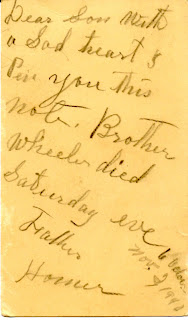 Dear Son With
a Sad heart I
Pen you this
note. Brother
Wheeler died
Saturday eve
Father
Homer
Nov. 2, 1940